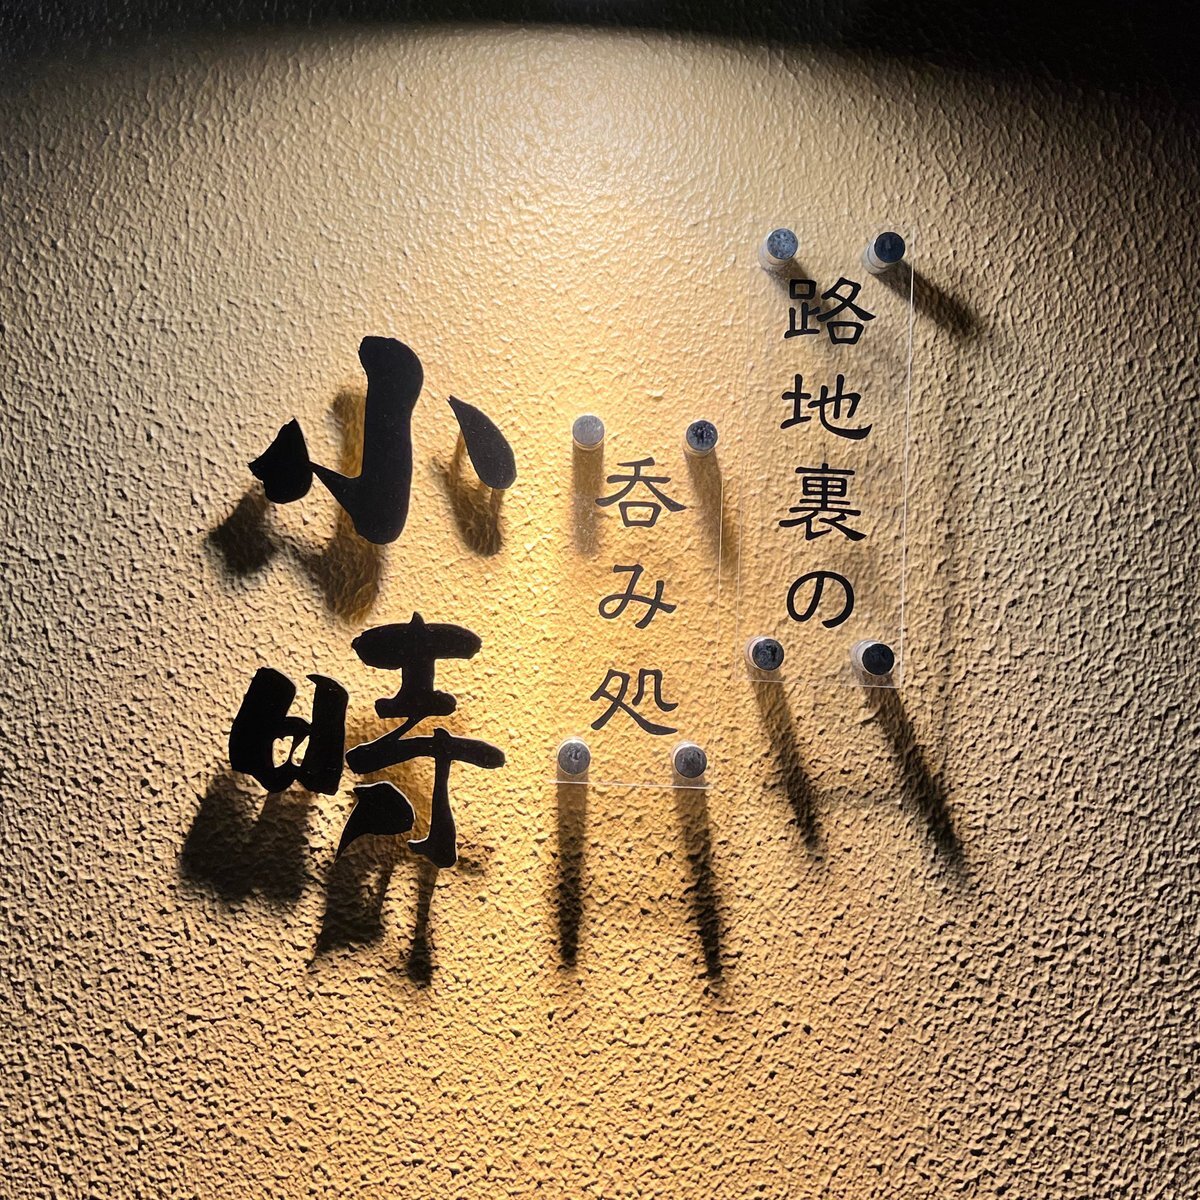 路地裏の
呑み処
小時